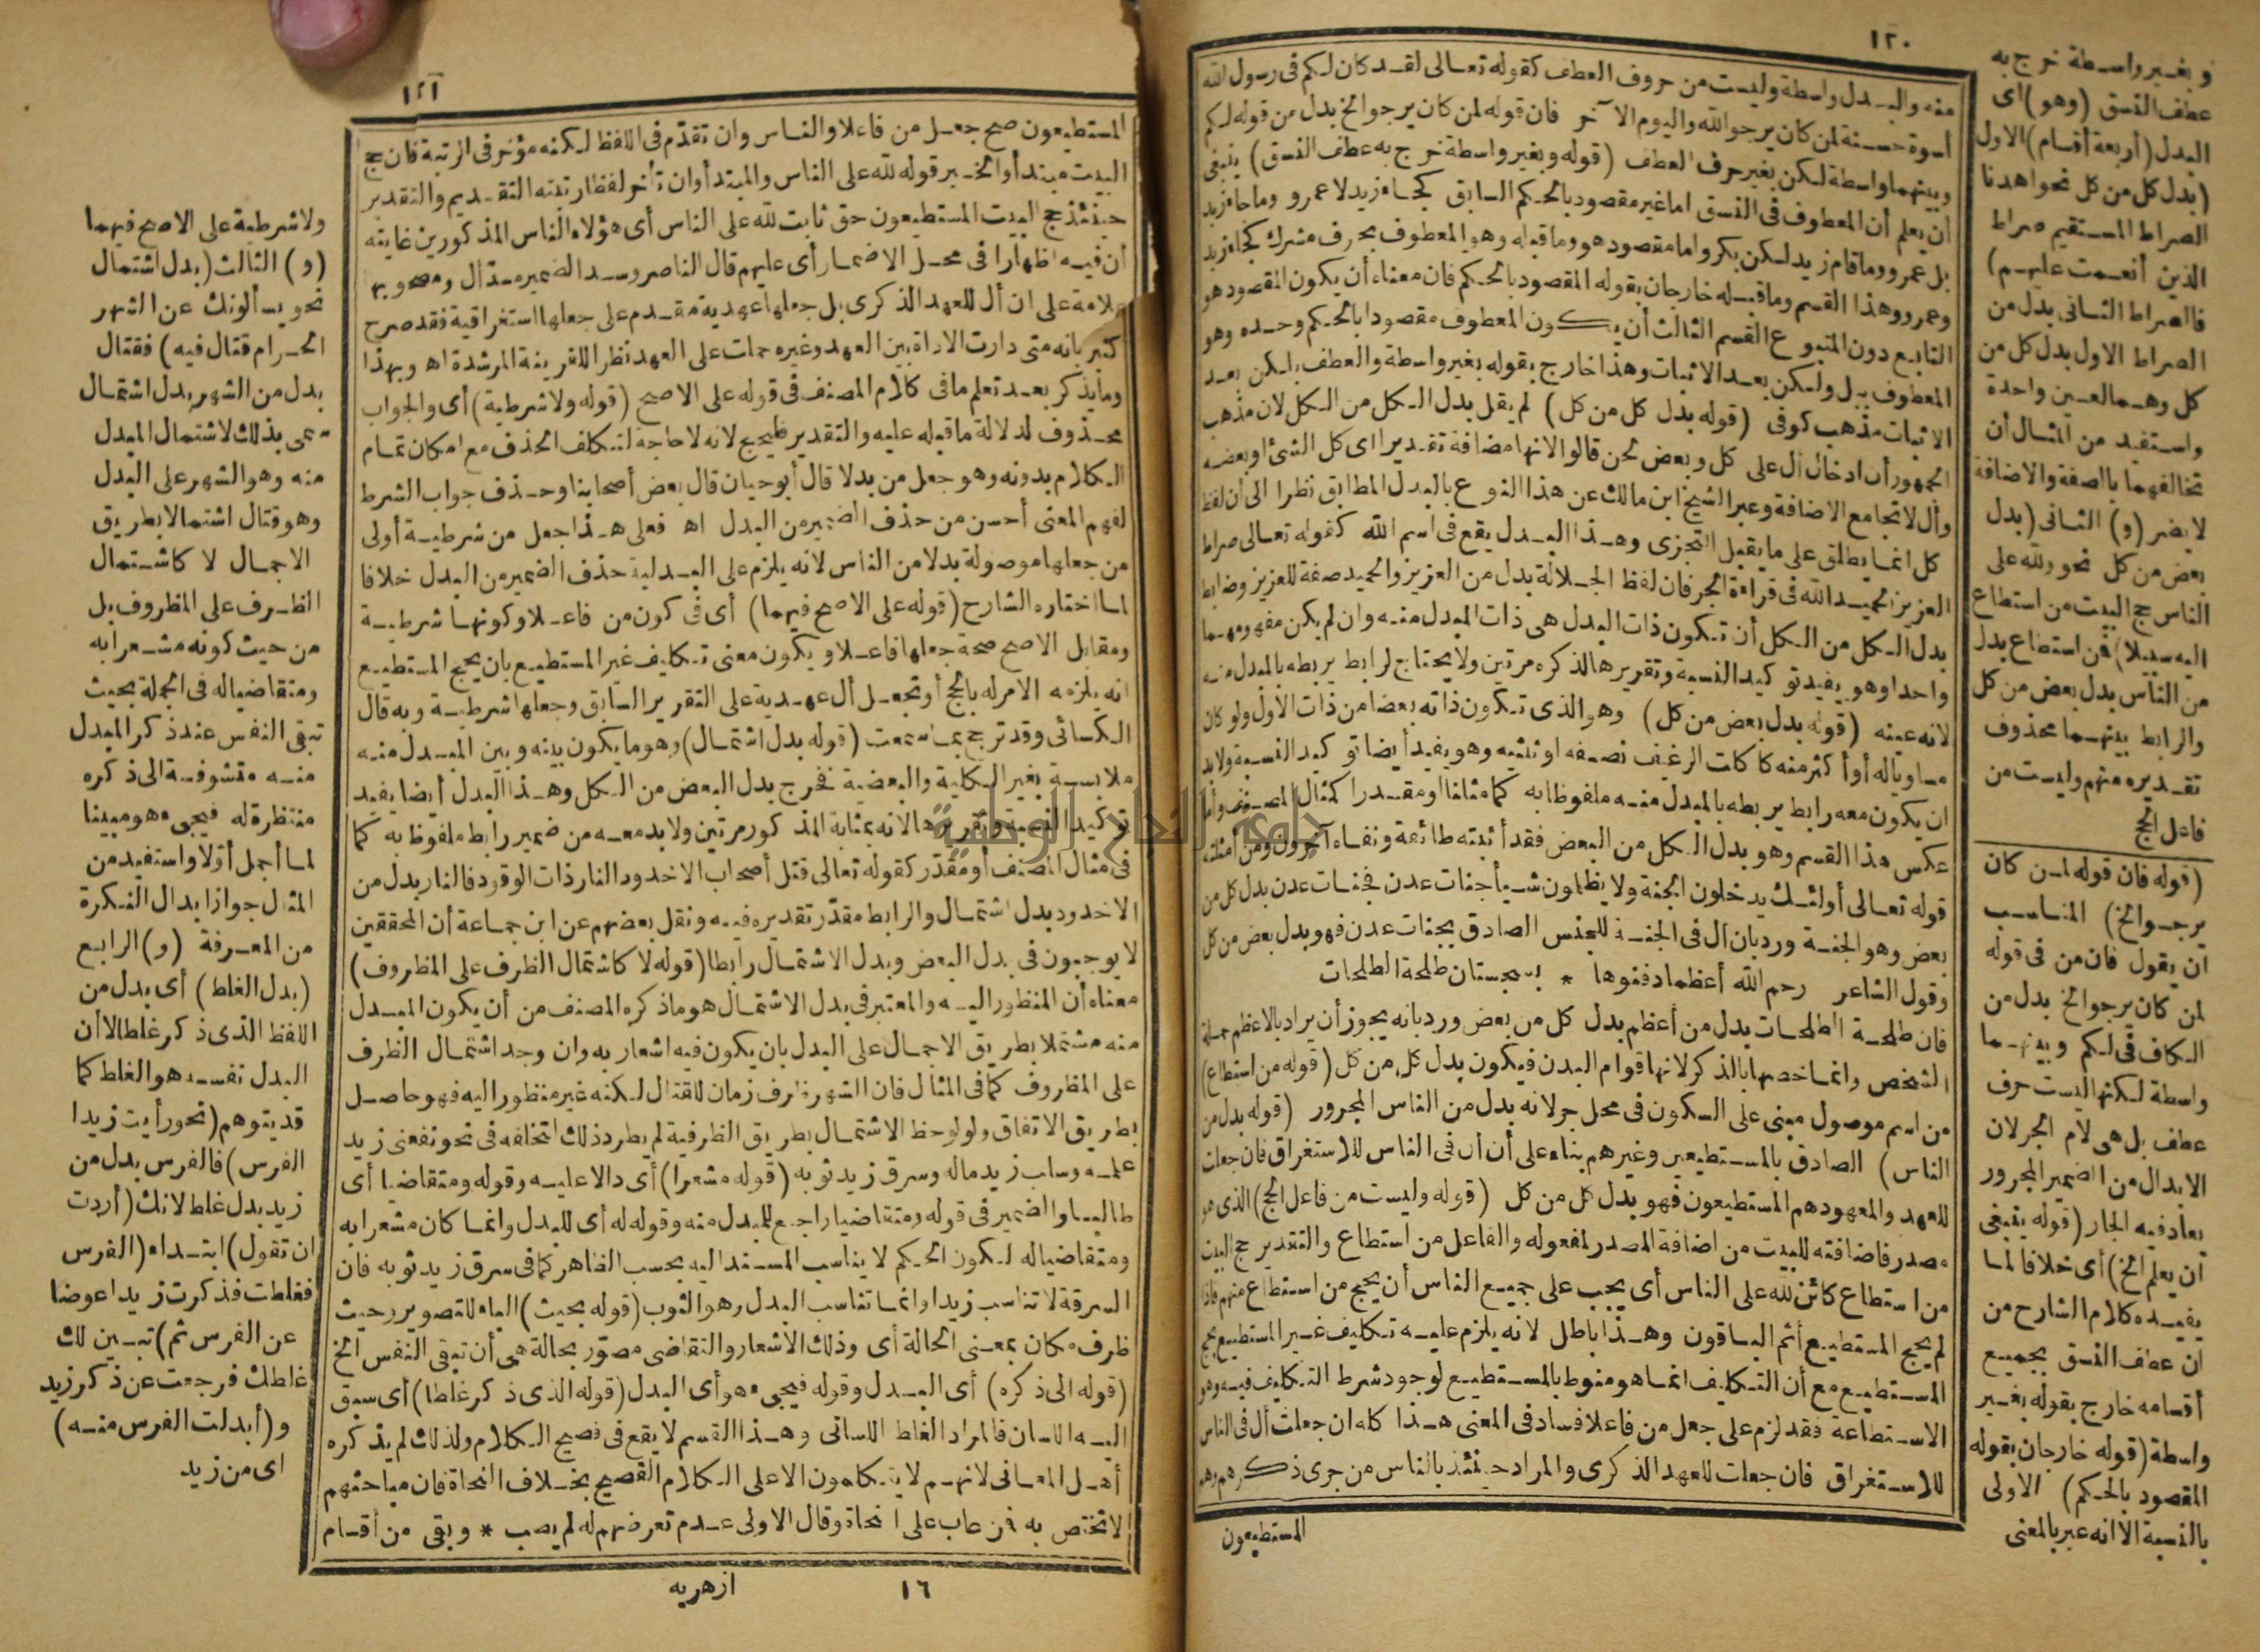 ١٢٠
منه والبدل واسطة وليست من حروف العطف كقوله تعالى لقد كان لكم فى رسول الله
أسوة حسنة لمن كان يرجو الله واليوم الآخر فان قوله لمن كان يرجو الخ بدل من قوله لكم
وبينهما واسطة لكن بغير حرف العطف (قوله وبغير واسطة خرج به عطف النسق) ينبغى
أن يعلم أن المعطوف فى النسق اما غير مقصود بالحكم السابق كجاء زيد لا عمرو وما جاء زيد
بل عمرو وما قام زيد لكن بكر واما مقصود هو وما قبله وهو المعطوف بحرف مشرك كجاء زيد
وعمرو وهذا القسم وما قبله خارجان بقوله المقصود بالحكم فان معناه أن يكون المقصود هو
التابع دون المتبوع القسم الثالث أن يكون المعطوف مقصودا بالحكم وحده وهو
المعطوف ببل ولكن بعد الاثبات وهذا خارج بقوله بغير واسطة والعطف بلكن بعد
الاثبات مذهب كوفى (قوله بدل كل من كل) لم يقل بدل الكل من الكل لان مذهب
الجمهور أن ادخال ال على كل وبعض لحن قالوا لانها مضافة تقديرا اى كل الشئ أو بعضه
وأل لا تجامع الاضافة وعبر الشيخ ابن مالك عن هذا النوع بالبدل المطابق نظرا الى أن لفظ
كل انما يطلق على ما يقبل التجزى وهذا البدل يقع فى اسم الله كقوله تعالى صراط
العزيز الحميد الله فى قراءة الجر فان لفظ الجلالة بدل من العزيز والحميد صفة للعزيز وضابط
بدل الكل من الكل أن تكون ذات البدل هى ذات المبدل منه وان لم يكن مفهومهما
واحدا وهو يفيد توكيد النسبة وتقريرها لذكره مرتين ولا يحتاج لرابط يربطه بالمبدل منه
لانه عينه (قوله بدل بعض من كل) وهو الذى تكون ذاته بعضا من ذات الأول ولو كان
مساويا له أو أكثر منه كأكلت الرغيف نصفه او ثلثيه وهو يفيد أيضا توكيد النسبة ولابد
ان يكون معه رابط يربطه بالمبدل منه ملفوظا به كما مثلنا او مقدرا كمثال المصنف وأما
عكس هذا القسم وهو بدل الكل من البعض فقد أثبته طائفة ونفاه آخرون ومن أمثلته
قوله تعالى أولئك يدخلون الجنة ولا يظلمون شيأ جنات عدن فجنات عدن بدل كل من
بعض وهو الجنة ورد بان ال فى الجنة للجنس الصادق بجنات عدن فهو بدل بعض من كل
وقول الشاعر رحم الله أعظما دفنوها * بسجستان طلحة الطلحات
فان طلحة الطلحات بدل من أعظم بدل كل من بعض ورد بانه يجوز أن يراد بالاعظم جملة
الشخص وانما خصها بالذكر لانها قوام البدن فيكون بدل كل من كل (قوله من استطاع)
من اسم موصول مبنى على السكون فى محل جر لانه بدل من الناس المجرور (قوله بدل من
الناس) الصادق بالمستطيعين وغيرهم بناء على أن أل فى الناس للاستغراق فان جعلت
للعهد والمعهود هم المستطيعون فهو بدل كل من كل (قوله وليست من فاعل الحج) الذى هو
مصدر فاضافته للبيت من اضافة المصدر لمفعوله والفاعل من استطاع والتقدير حج البيت
من استطاع كائن لله على الناس أى يجب على جميع الناس أن يحج من استطاع منهم فاذا
لم يحج المستطيع أثم الباقون وهذا باطل لانه يلزم عليه تكليف غير المستطيع بحج
المستطيع مع أن التكليف انما هو منوط بالمستطيع لوجود شرط التكليف فيه وهو
الاستطاعة فقد لزم على جعل من فاعلا فساد فى المعنى هذا كله ان جعلت أل فى الناس
للاستغراق فان جعلت للعهد الذكرى والمراد حينئذ بالناس من جرى ذكرهم وهم
المستطيعون
وبغير واسطة خرج به
عطف النسق (وهو) اى
البدل (أربعة أقسام) الاول
(بدل كل من كل نحو اهدنا
الصراط المستقيم صراط
الذين أنعمت عليهم)
فالصراط الثانى بدل من
الصراط الاول بدل كل من
كل وهما لعين واحدة
واستفيد من المثال أن
تخالفهما بالصفة والاضافة
لا يضر (و) الثانى (بدل
بعض من كل نحو ولله على
الناس حج البيت من استطاع
اليه سبيلا) فمن استطاع بدل
من الناس بدل بعض من كل
والرابط بينهما محذوف
تقديره منهم وليست من
فاعل الحج
(قوله فان قوله لمن كان
يرجو الخ) المناسب
ان يقول فان من فى قوله
لمن كان يرجو الخ بدل من
الكاف فى لكم وبينهما
واسطة لكنها ليست حرف
عطف بل هى لام الجر لان
الابدال من الضمير المجرور
يعاد فيه الجار (قوله ينبغى
أن يعلم الخ) أى خلافا لما
يفيده كلام الشارح من
ان عطف النسق بجميع
أقسامه خارج بقوله بغير
واسطة (قوله خارجان بقوله
المقصود بالحكم) الاولى
بالنسبة الا انه عبر بالمعنى
١٢١
المستطيعون صح جعل من فاعلا والناس وان تقدم فى اللفظ لكنه مؤخر فى الرتبة فان حج
البيت مبتدأ والخبر قوله لله على الناس والمبتدأ وان تأخر لفظا رتبته التقديم والتقدير
حينئذ حج البيت المستطيعون حق ثابت لله على الناس أى هؤلاء الناس المذكورين غايته
أن فيه اظهارا فى محل الاضمار أى عليهم قال الناصر وسد الضمير مسد أل ومصحوبها
علامة على ان أل للعهد الذكرى بل جعلها عهدية مقدم على جعلها استغراقية فقد صرح
كثير بانه متى دارت الاداة بين العهد وغيره حملت على العهد نظرا للقرينة المرشدة اه وبهذا
وما يذكر بعد تعلم ما فى كلام المصنف فى قوله على الاصح (قوله ولا شرطية) أى والجواب
محذوف لدلالة ما قبله عليه والتقدير فليحج لانه لا حاجة لتكلف الحذف مع امكان تمام
الكلام بدونه وهو جعل من بدلا قال أبو حيان قال بعض أصحابنا وحذف جواب الشرط
لفهم المعنى أحسن من حذف الضمير من البدل اه فعلى هذا جعل من شرطية أولى
من جعلها موصولة بدلا من الناس لانه يلزم على البدلية حذف الضمير من البدل خلافا
لما اختاره الشارح (قوله على الاصح فيهما) أى فى كون من فاعلا وكونها شرطية
ومقابل الاصح صحة جعلها فاعلا ويكون معنى تكليف غير المستطيع بان يحج المستطيع
انه يلزمه الامر له بالحج أو تجعل أل عهدية على التقرير السابق وجعلها شرطية وبه قال
الكسائى وقد ترجح بما سمعت (قوله بدل اشتمال) وهو ما يكون بينه وبين المبدل منه
ملابسة بغير الكلية والبعضية فخرج بدل البعض من الكل وهذا البدل أيضا يفيد
توكيد النسبة وتقريرها لانه بمثابة المذكور مرتين ولابد معه من ضمير رابط ملفوظ به كما
فى مثال المصنف أو مقدر كقوله تعالى قتل أصحاب الاخدود النار ذات الوقود فالنار بدل من
الاخدود بدل اشتمال والرابط مقدر تقديره فيه ونقل بعضهم عن ابن جماعة أن المحققين
لا يوجبون فى بدل البعض وبدل الاشتمال رابطا (قوله لا كاشتمال الظرف على المظروف)
معناه أن المنظور اليه والمعتبر فى بدل الاشتمال هو ما ذكره المصنف من أن يكون المبدل
منه مشتملا بطريق الاجمال على البدل بان يكون فيه اشعار به وان وجد اشتمال الظرف
على المظروف كما فى المثال فان الشهر ظرف زمان للقتال لكنه غير منظور اليه فهو حاصل
بطريق الاتفاق ولو لوحظ الاشتمال بطريق الظرفية لم يطرد ذلك لتخلفه فى نحو نفعنى زيد
علمه وسلب زيد ماله وسرق زيد ثوبه (قوله مشعرا) أى دالا عليه وقوله ومتقاضيا أى
طالبا والضمير فى قوله ومتقاضيا راجع للمبدل منه وقوله له أى للبدل وانما كان مشعرا به
ومتقاضيا له لكون الحكم لا يناسب المسند اليه بحسب الظاهر كما فى سرق زيد ثوبه فان
السرقة لا تناسب زيدا وانما تناسب البدل وهو الثوب (قوله بحيث) الباء للتصوير وحيث
ظرف مكان بمعنى الحالة أى وذلك الاشعار والتقاضى مصور بحالة هى أن تبقى النفس الخ
(قوله الى ذكره) أى البدل وقوله فيجىء هو أى البدل (قوله الذى ذكر غلطا) أى سبق
اليه اللسان فالمراد الغلط اللسانى وهذا القسم لا يقع فى فصيح الكلام ولذلك لم يذكره
أهل المعانى لانهم لا يتكلمون الا على الكلام الفصيح بخلاف النحاة فان مباحثهم
لا تختص به فمن عاب على النحاة وقال الاولى عدم تعرضهم له لم يصب * وبقى من أقسام
١٦
ازهريه
ولا شرطية على الاصح فيهما
(و) الثالث (بدل اشتمال
نحو يسألونك عن الشهر
الحرام قتال فيه) فقتال
بدل من الشهر بدل اشتمال
سمى بذلك لاشتمال المبدل
منه وهو الشهر على البدل
وهو قتال اشتمالا بطريق
الاجمال لا كاشتمال
الظرف على المظروف بل
من حيث كونه مشعرا به
ومتقاضيا له فى الجملة بحيث
تبقى النفس عند ذكر المبدل
منه متشوفة الى ذكره
منتظرة له فيجىء هو مبينا
لما أجمل أولا واستفيد من
المثال جواز ابدال النكرة
من المعرفة (و) الرابع
(بدل الغلط) أى بدل من
اللفظ الذى ذكر غلطا لا أن
البدل نفسه هو الغلط كما
قد يتوهم (نحو رأيت زيدا
الفرس) فالفرس بدل من
زيد بدل غلط لانك (أردت
ان تقول) ابتداء (الفرس
فغلطت فذكرت زيدا عوضا
عن الفرس ثم) تبين لك
غلطك فرجعت عن ذكر زيد
و(أبدلت الفرس منه)
اى من زيد
جامعة النجاح الوطنية